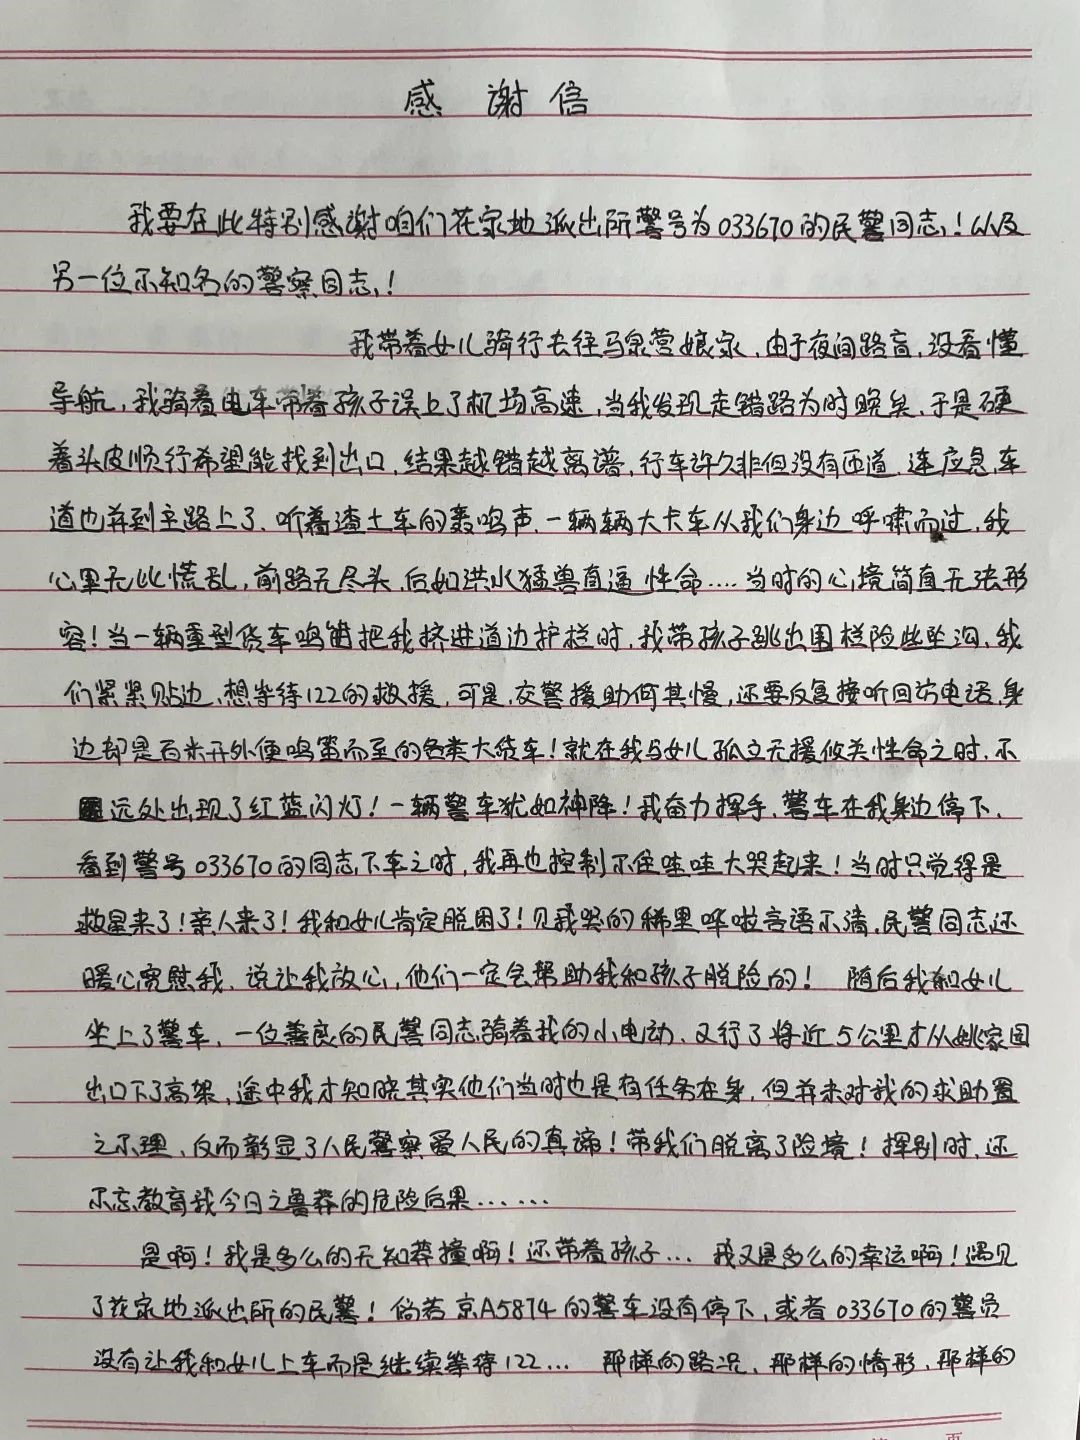 感谢信
我要在此特别感谢咱们花家地派出所警号为033670的民警同志！以及
另一位不知名的警察同志！
我带着女儿骑行去往马泉营娘家，由于夜间路盲，没看懂
导航，我骑着电车带着孩子误上了机场高速，当我发现走错路为时晚矣，于是硬
着头皮顺行希望能找到出口，结果越错越离谱，行车许久非但没有匝道，连应急车
道也并到主路上了，听着渣土车的轰鸣声，一辆辆大卡车从我们身边呼啸而过，我
心里无比慌乱，前路无尽头，后如洪水猛兽直逼性命……当时的心境简直无法形
容！当一辆重型货车鸣笛把我挤进道边护栏时，我带孩子跳出围栏险些坠沟，我
们紧紧贴边，想等待122的救援，可是，交警援助何其慢，还要反复接听回访电话，身
边却是百米开外便鸣笛而至的各类大货车！就在我与女儿孤立无援攸关性命之时，不
远处出现了红蓝闪灯！一辆警车犹如神降！我奋力挥手，警车在我身边停下，
看到警号033670的同志下车之时，我再也控制不住哇哇大哭起来！当时只觉得是
救星来了！亲人来了！我和女儿肯定脱困了！见我哭的稀里哗啦言语不清，民警同志还
暖心宽慰我，说让我放心，他们一定会帮助我和孩子脱险的！ 随后我和女儿
坐上了警车，一位善良的民警同志骑着我的小电动，又行了将近5公里才从姚家园
出口下了高架，途中我才知晓其实他们当时也是有任务在身，但并未对我的求助置
之不理，反而彰显了人民警察爱人民的真谛！带我们脱离了险境！挥别时，还
不忘教育我今日之鲁莽的危险后果……
是啊！我是多么的无知莽撞啊！还带着孩子… 我又是多么的幸运啊！遇见
了花家地派出所的民警！倘若京A5874的警车没有停下，或者033670的警员
没有让我和女儿上车而是继续等待122… 那样的路况，那样的情形，那样的
页